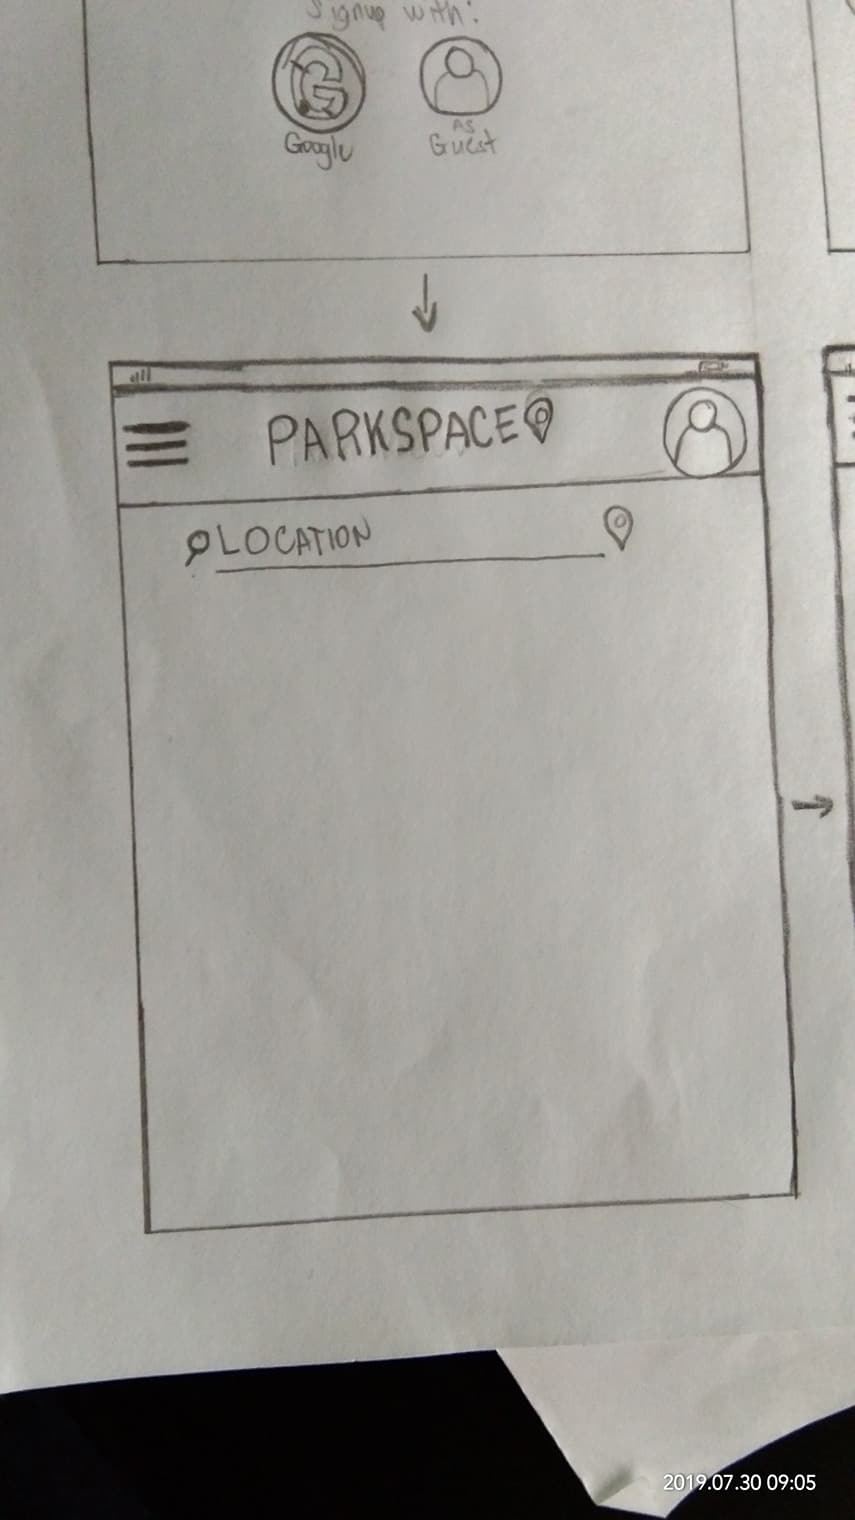 Signup with:
G
Google
As
Guest
PARKSPACE
LOCATION
2019.07.30 09:05